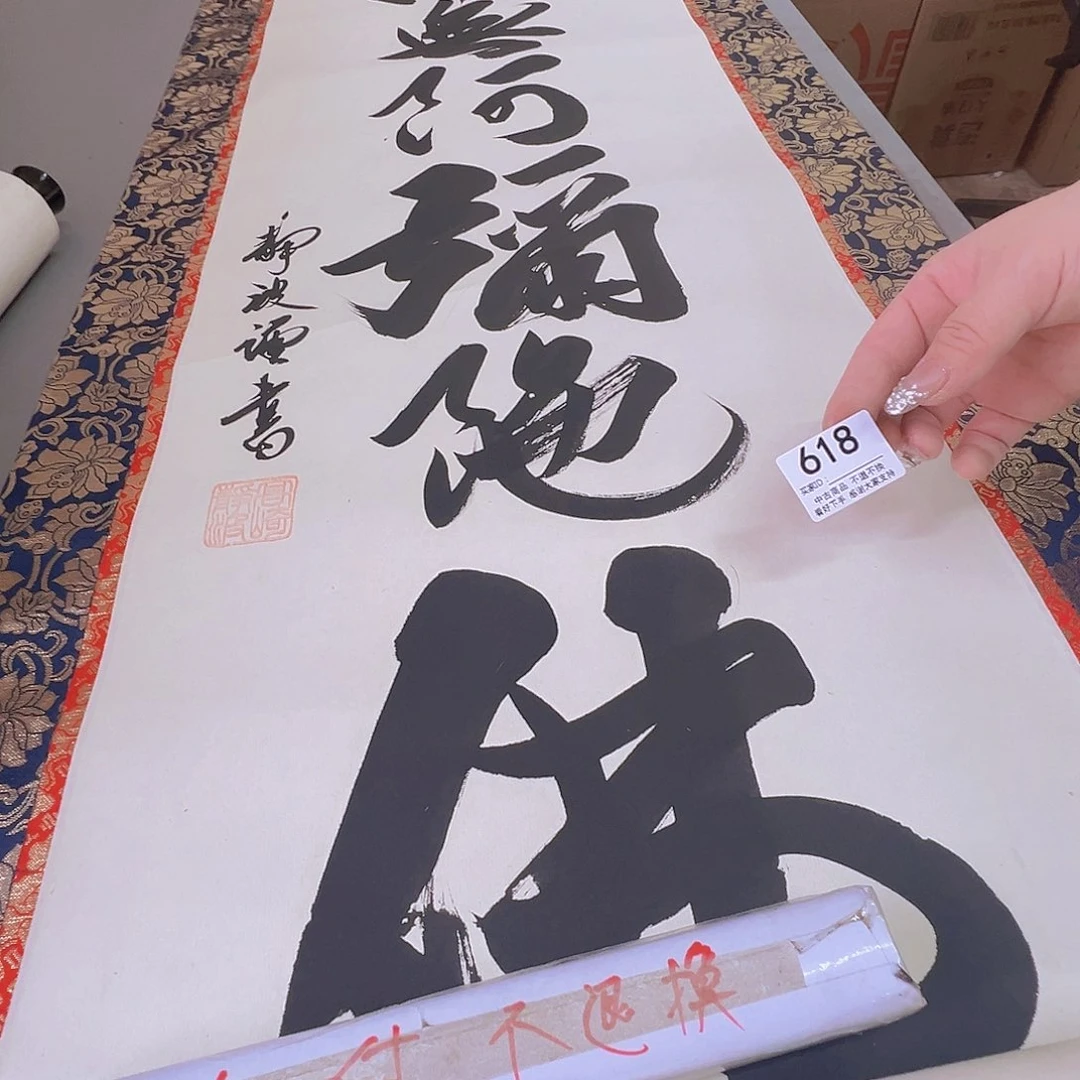 無阿彌陀佛
靜波謹書
618
买家ID:
中古商品 不退不换
看好下手 感谢大家支持
不退换